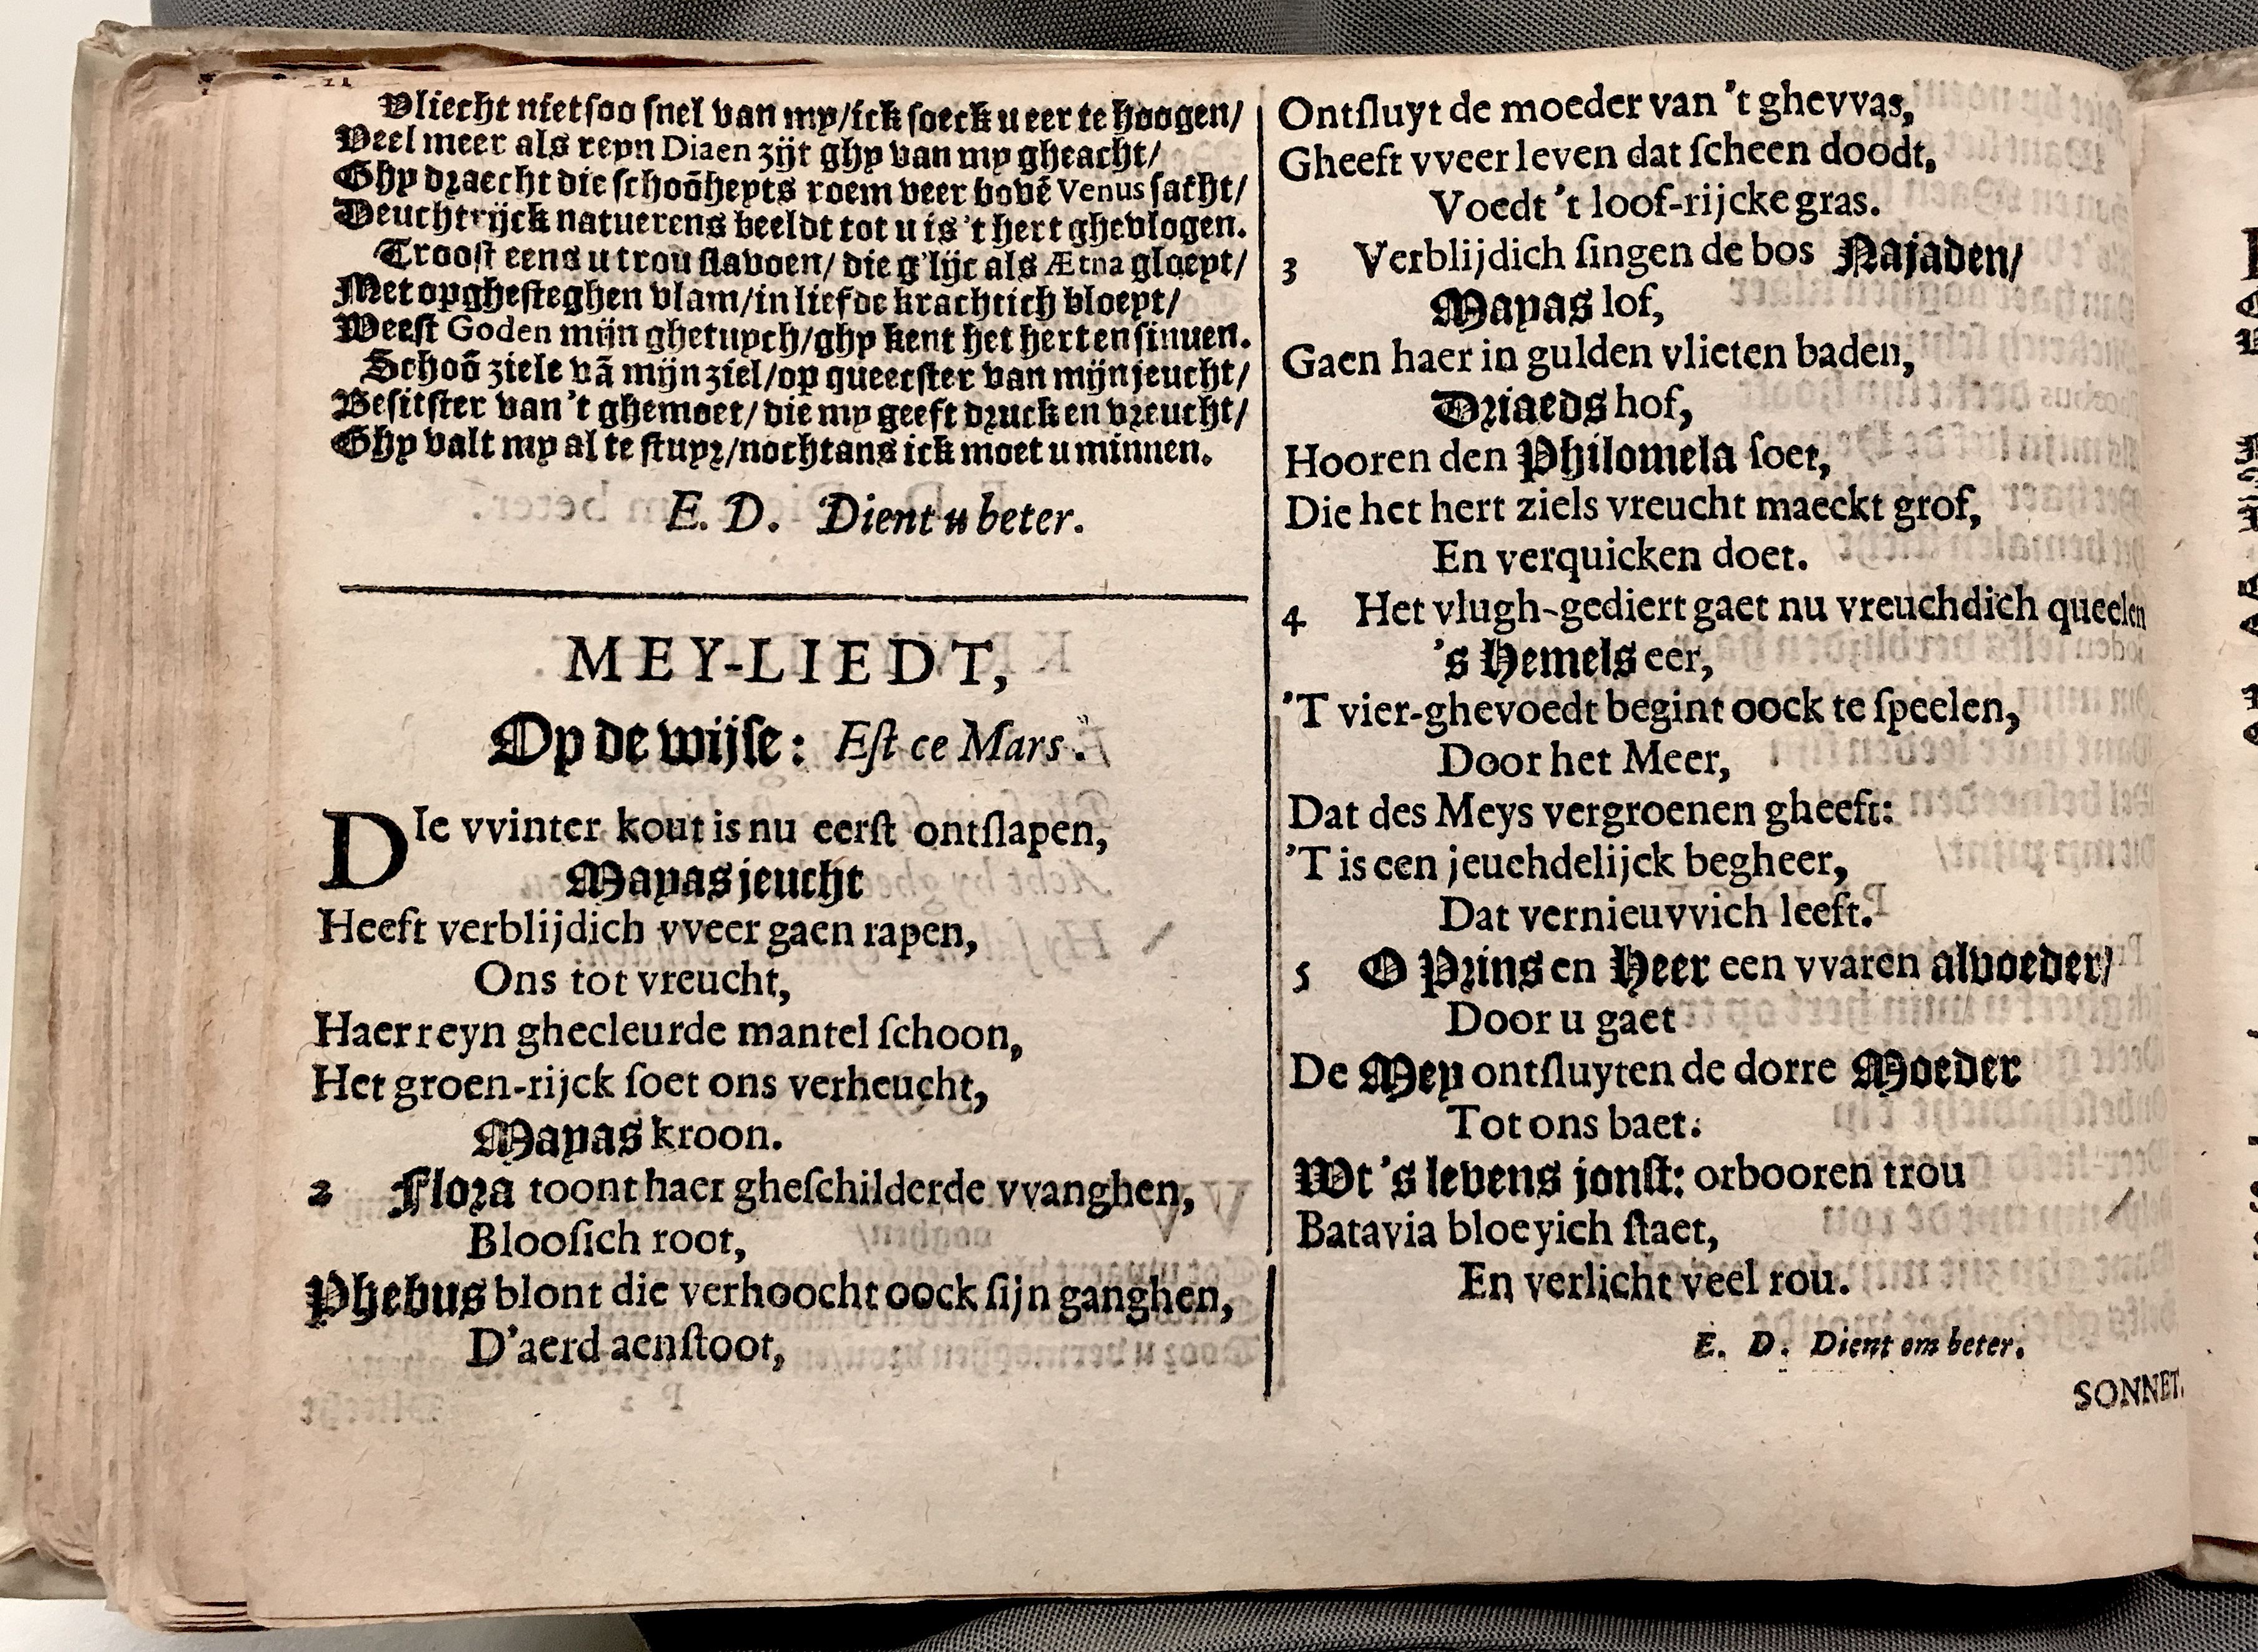 Vliecht niet soo snel van my/ick soeck u eer te hoogen/
Veel meer als reyn Diaen zijt ghy van my gheacht/
Ghy draecht die schoōheyts roem veer bovē Venus sacht/
Deuchtrijck natuerens beeldt tot u is 't hert ghevlogen.
Troost eens u trou slavoen/ die g'lijc als Ætna gloeyt/
Met opghesteghen vlam/in liefde krachtich bloeyt/
Weest Goden mijn ghetuych/ghy kent het hert en sinnen.
Schoō ziele vā mijn ziel/op queecster van mijn jeucht/
Besitster van 't ghemoet/ die my geeft druck en vreucht/
Ghy valt my al te stuyr/nochtans ick moet u minnen.
E. D. Dient u beter.
MEY-LIEDT,
Op de wijse: Est ce Mars.
DIe vvinter kout is nu eerst ontslapen,
Mayas jeucht
Heeft verblijdich vveer gaen rapen,
Ons tot vreucht,
Haer reyn ghecleurde mantel schoon,
Het groen-rijck soet ons verheucht,
Mayas kroon.
2 Flora toont haer gheschilderde vvanghen,
Bloosich root,
Phebus blont die verhoocht oock sijn ganghen,
D'aerd aenstoot,
Ontsluyt de moeder van 't ghevvas,
Gheeft vveer leven dat scheen doodt,
Voedt 't loof-rijcke gras.
3 Verblijdich singen de bos Najaden/
Mayas lof,
Gaen haer in gulden vlieten baden,
Driaeds hof,
Hooren den Philomela soet,
Die het hert ziels vreucht maeckt grof,
En verquicken doet.
4 Het vlugh-gediert gaet nu vreuchdich queelen
's Hemels eer,
'T vier-ghevoedt begint oock te speelen,
Door het Meer,
Dat des Meys vergroenen gheeft:
'T is een jeuchdelijck begheer,
Dat vernieuvvich leeft.
5 O Prins en Heer een vvaren alvoeder/
Door u gaet
De Mey ontsluyten de dorre Moeder
Tot ons baet:
Wt 's levens jonst: orbooren trou
Batavia bloeyich staet,
En verlicht veel rou.
E. D. Dient om beter.
SONNET.